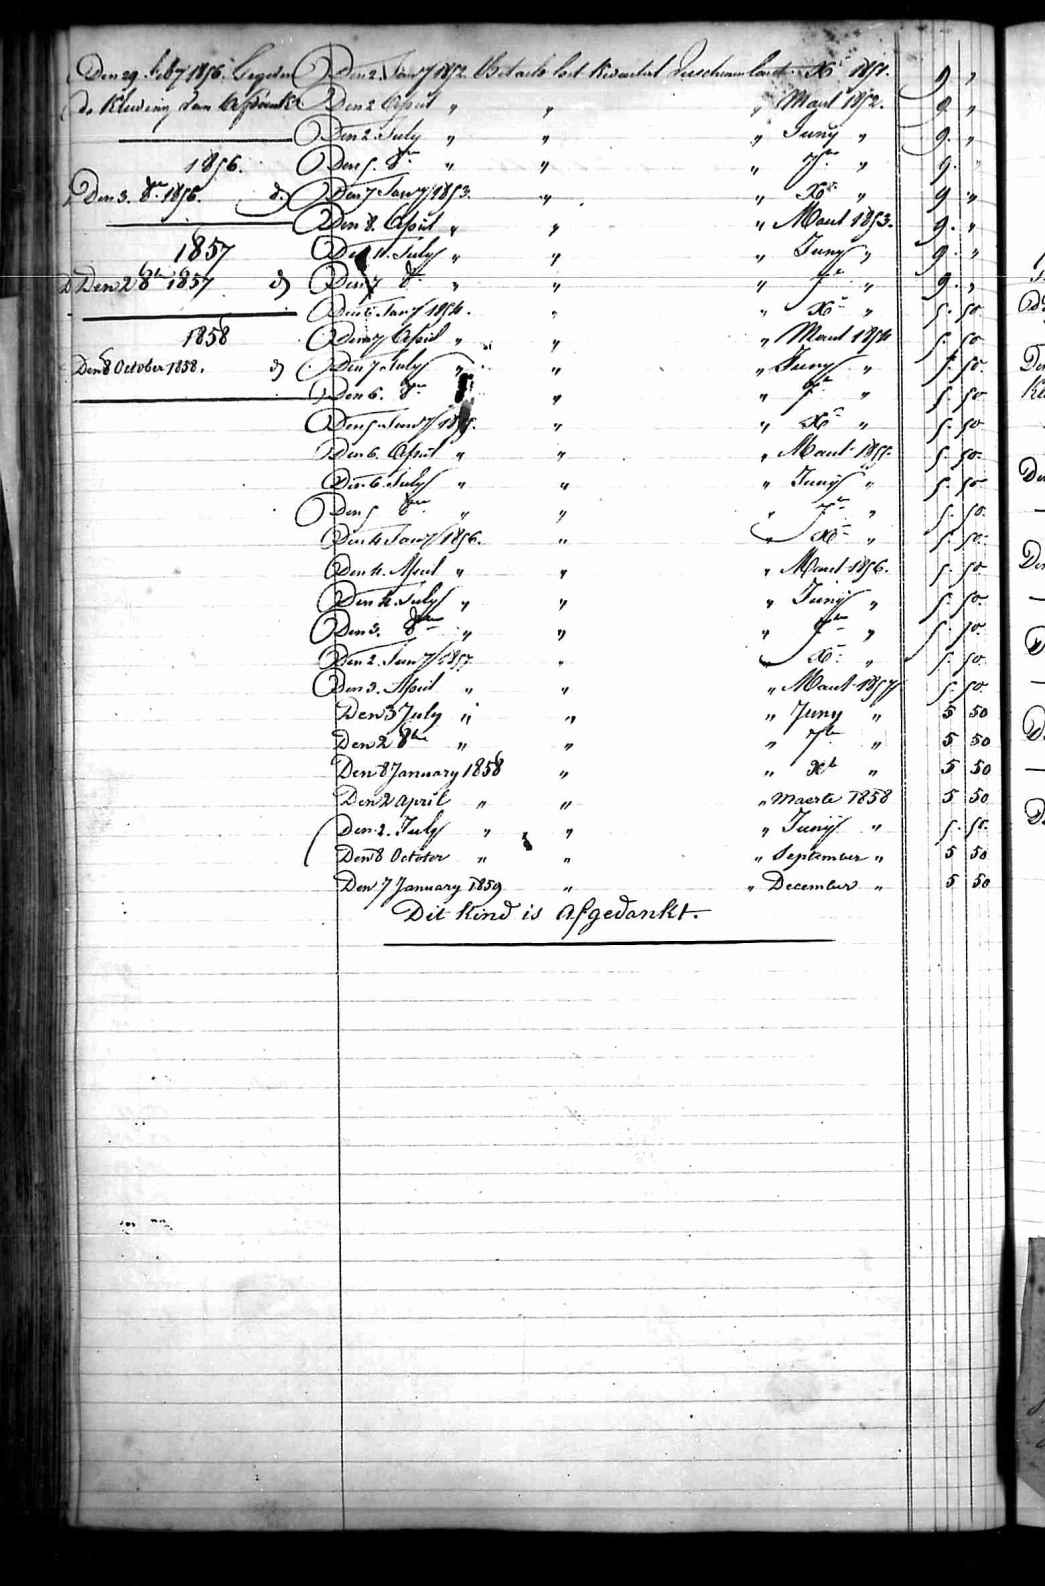 Den 29 feb7 1856. Gegeven
de Kleding van Afdank
1856.
Den 3. 8er 1856. d.
1857
D Den 2 8br 1857 d)
1858
Den 8 October 1858. d)
Den 2. Jan7 1852. Betaelt het kwartael verschenen laest Xr 1851. 9 "
Den 2 April " " " Maert 1852. 9 "
Den 2. July " " " Juny " 9. "
Den 5. 8er " " " 7er " 9. "
Den 7 Jan7 1853. " " Xr " 9 "
Den 8. April " " " Maert 1853. 9. "
Den 11. July " " " Juny " 9. "
Den 7 8r " " " 7r " 9. "
Den Jan7 1854. " " Xr " 5. 50
Den 7 April " " " Maert 1854 5. 50
Den 7. July " " " Juny " 5. 50
Den 6. 8er " " 7er " 5. 50
Den 5 Jan7 1855. " " Xr " 5. 50
Den 6. April " " " Maert 1855. 5. 50
Den 6. July " " " Juny " 5. 50
Den 5 8er " " " 7er " 5. 50
Den 4 Jan7 1856. " " Xr " 5. 50.
Den 4. April " " " Maert 1856. 5. 50
Den 4. July " " " Juny " 5. 50.
Den 3. 8er " " " 7er " 5. 50.
Den 2. Jan7 1857 " " Xr " 5. 50.
Den 3. April " " " Maert 1857 5. 50.
Den 3 July " " " Juny " 5 50
Den 2 8br " " " 7br " 5 50
Den 8 January 1858 " " Xb " 5 50
Den 2 april " " " maerte 1858 5 50
Den 2. July " " " Juny " 5. 50.
Den 8 October " " " September " 5 50
Den 7 January 1859 " " December " 5 50
Dit Kind is Afgedankt.